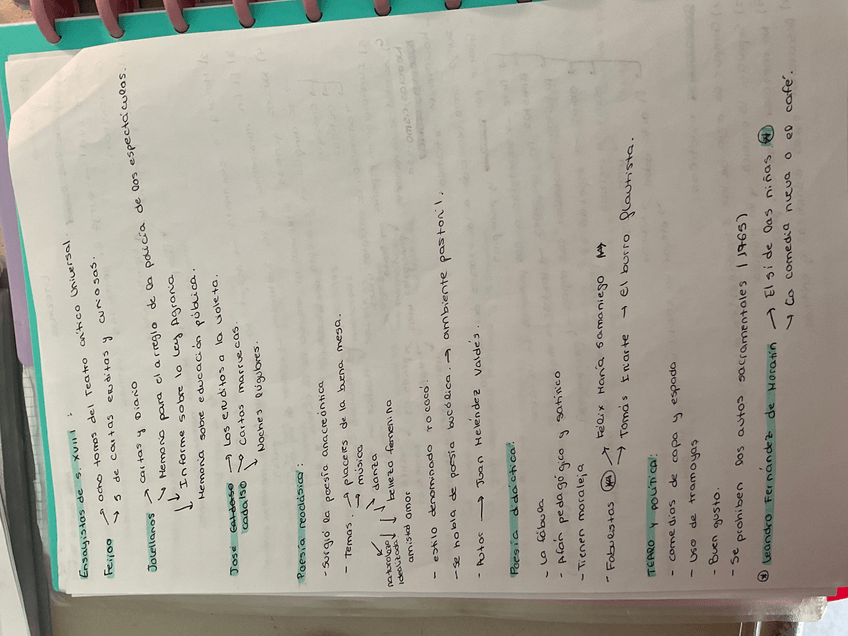 Ensayistas de s. XVIII :
Feijoo → ocho tomos del Teatro crítico Universal.
→ 5 de cartas eruditas y curiosas.
Jovellanos → cartas y Diario
→ Memoria para el arreglo de la policía de los espectáculos.
→ Informe sobre la Ley Agraria
→ Memoria sobre educación pública.
José Cadalso → Los eruditos a la violeta.
→ Cartas marruecas.
→ Noches lúgubres.
Poesía neoclásica :
- Surgió la poesía anacreóntica
- Temas: → placeres de la buena mesa.
→ música
→ danza
→ belleza femenina
naturaleza idealizada
amistad amor
- estilo denominado rococó.
- se habla de poesía bucólica. → ambiente pastoril.
- Autor → Juan Meléndez Valdés.
Poesía didáctica:
- La fábula
- Afán pedagógico y satírico
- Tienen moraleja
- Fabulistas → Félix María Samaniego
→ Tomás Iriarte → El burro flautista.
TEATRO Y POLÍTICA:
- comedias de capa y espada
- Uso de tramoyas
- Buen gusto.
- Se prohiben los autos sacramentales (1765)
* Leandro Fernández de Moratín → El sí de las niñas.
→ La comedia nueva o el café.